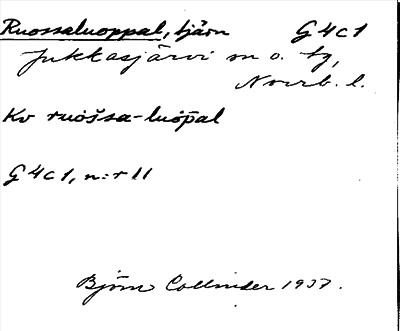 Ruossaluoppal, tjärn G4c1
Jukkasjärvi sn o. tg,
Norrb. l.
Kv ruossa-luoppal
G4c1, n:r 11
Björn Collinder 1937.